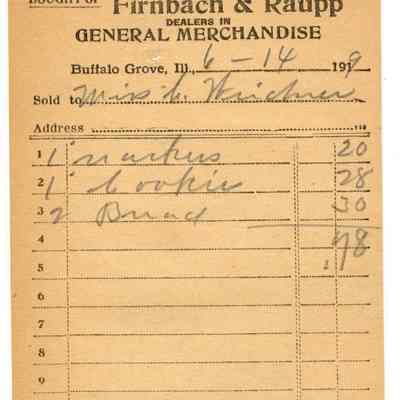 BOUGHT OF Firnbach & Raupp
DEALERS IN
GENERAL MERCHANDISE
Buffalo Grove, Ill., 6-14 1919
Sold to Miss
Address
1 1 20
2 1 Cookie 28
3 2 Bread 30
4 78
5
6
7
8
9